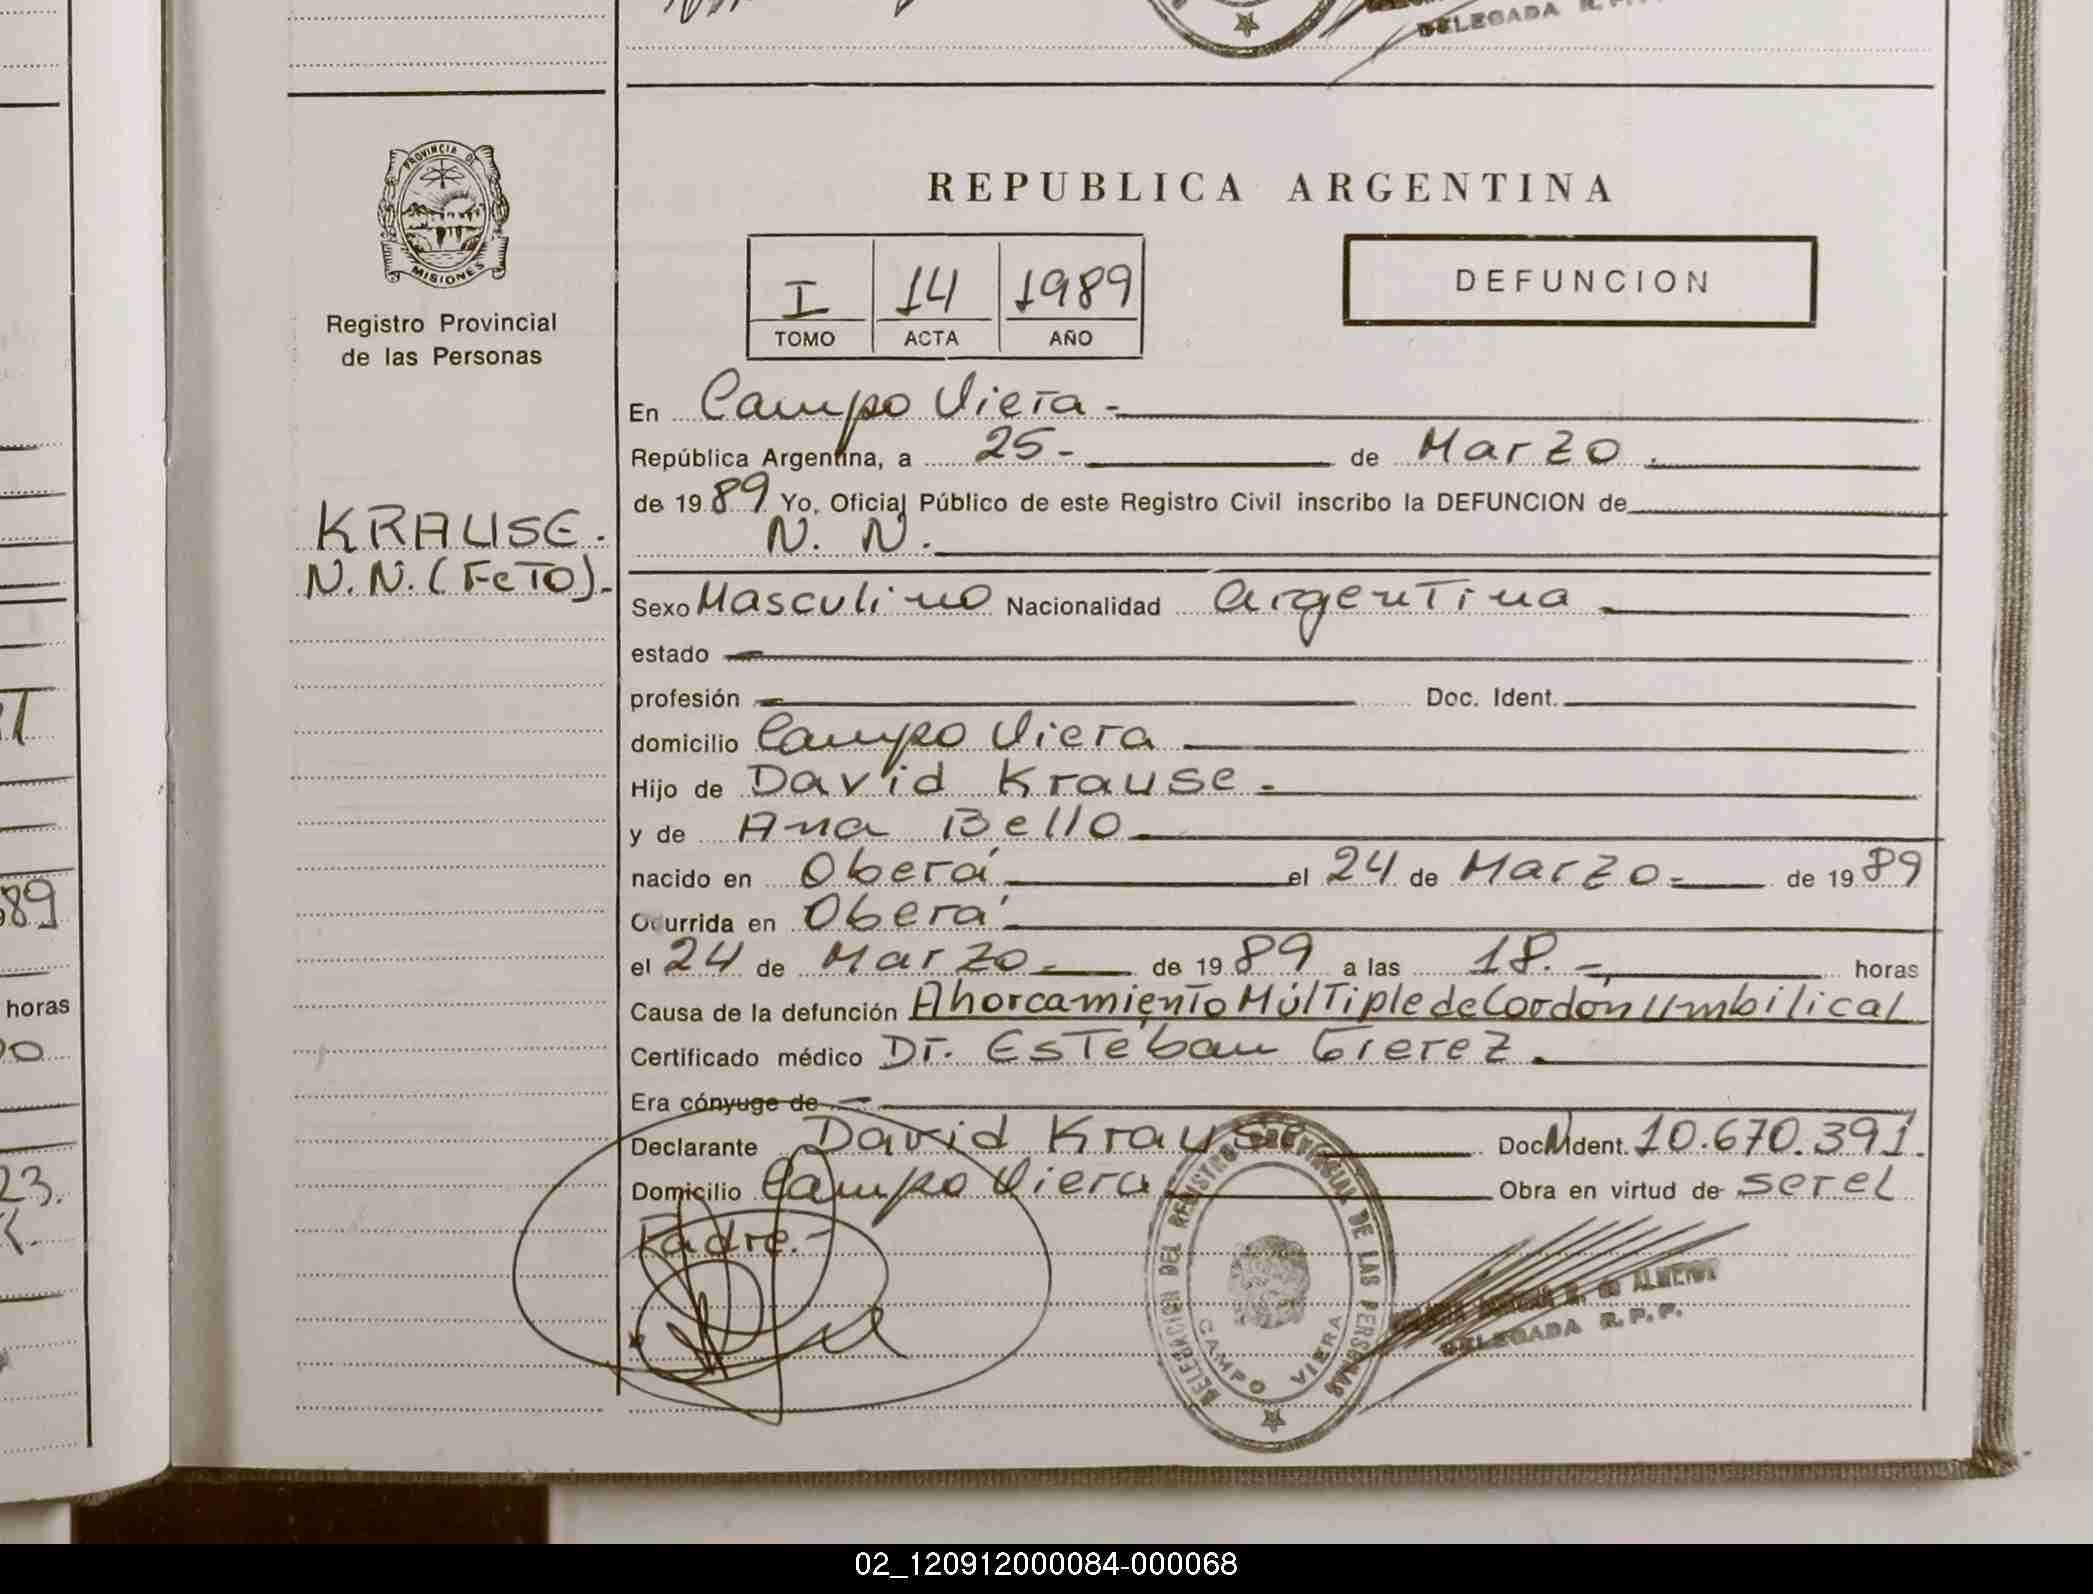 DELEGADA R.P.P.
PROVINCIA DE
MISIONES
Registro Provincial
de las Personas
KRAUSE.
N.N. (FeTO).-
REPUBLICA ARGENTINA
I 14 1989
TOMO ACTA AÑO
DEFUNCION
En Campo Viera -
República Argentina, a 25- de Marzo.
de 1989 Yo, Oficial Público de este Registro Civil inscribo la DEFUNCION de
N. N.
Sexo Masculino Nacionalidad Argentina
estado
profesión Doc. Ident.
domicilio Campo Viera
Hijo de David Krause -
y de Ana Bello
nacido en Oberá el 24 de Marzo - de 1989
Ocurrida en Oberá
el 24 de Marzo - de 1989 a las 18.- horas
Causa de la defunción Ahorcamiento Múltiple de Cordón Umbilical
Certificado médico Dr. Esteban
Era cónyuge de -
Declarante David Krause Doc. Ident. 10.670.391.
Domicilio Campo Viera Obra en virtud de ser el
Padre.-
DELEGACION DEL REGISTRO PROVINCIAL DE LAS PERSONAS
CAMPO VIERA
DELEGADA R.P.P.
89
horas
23.
02_120912000084-000068